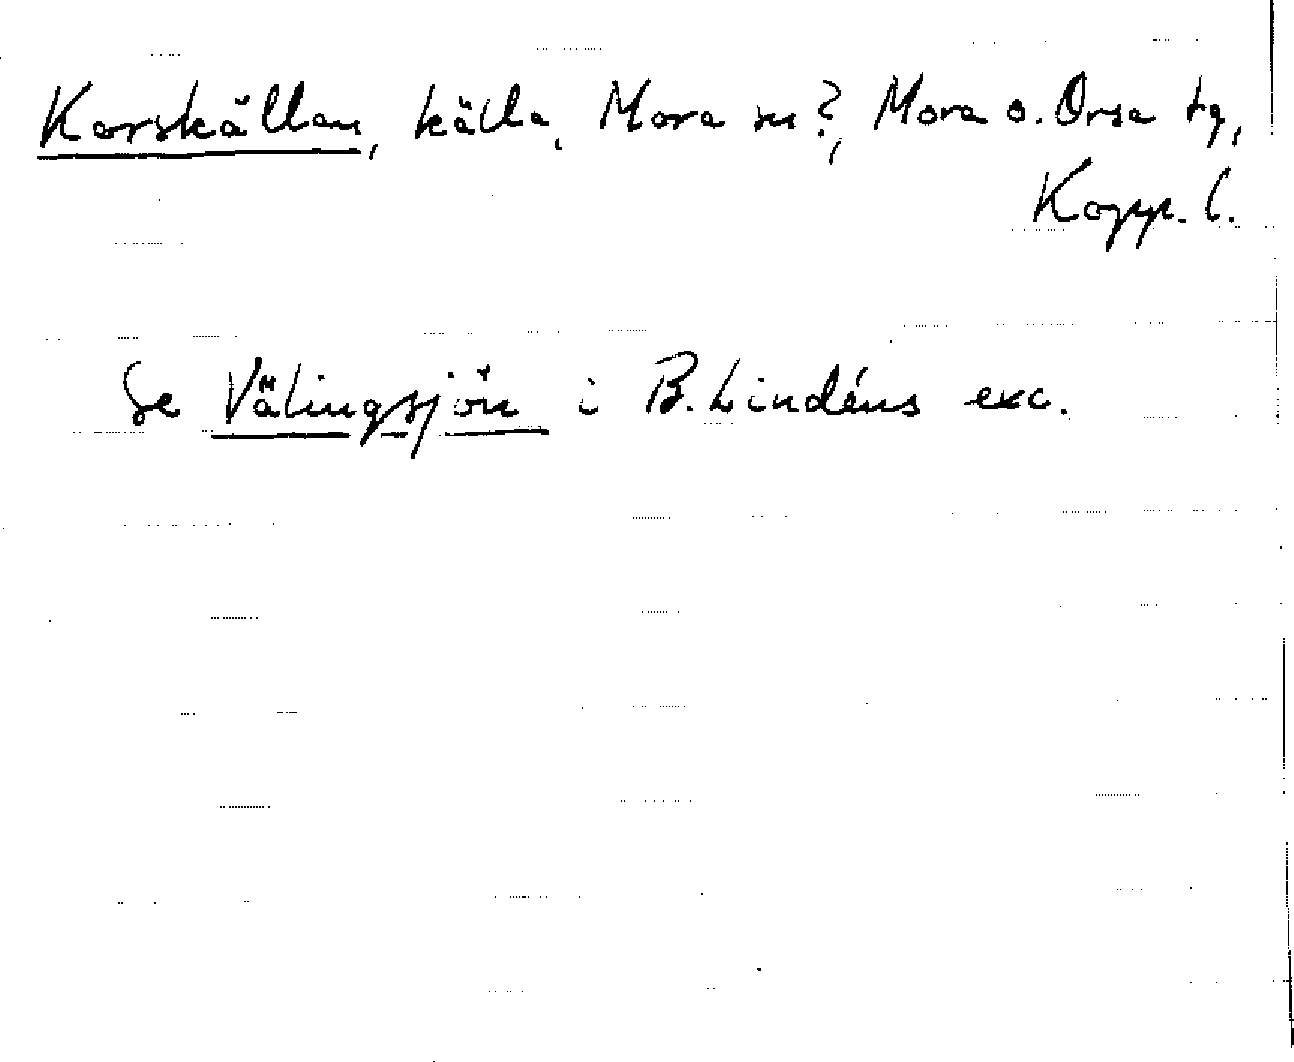 Korskällan, källa, Mora sn?, Mora o. Orsa tg,
Kopp. l.
Se Välingsjön i B. Lindéns exc.